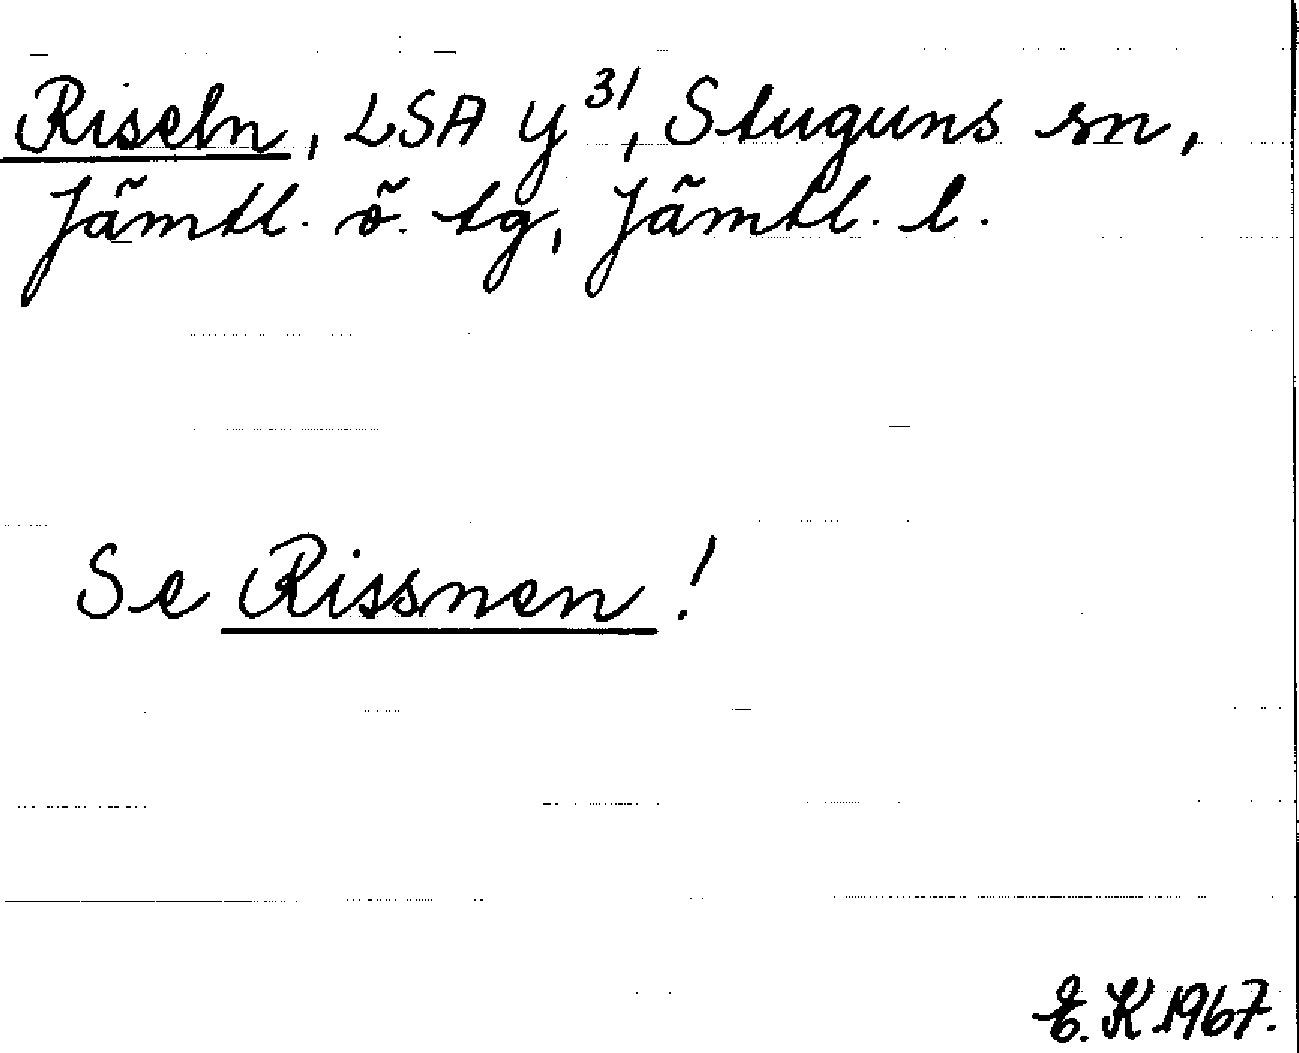 Riseln, LSA Y³¹, Stuguns sn,
Jämtl. ö. tg, Jämtl. l.
Se Rissnen!
E. K 1967.